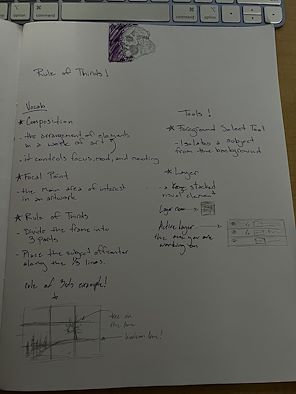 option
command
command
option
Rule of Thirds!
Vocab
★ Composition
- the arrangement of elements
in a work of art
- it controls focus, mood, and meaning
★ Focal Point
- the main area of interest
in an artwork
★ Rule of Thirds
- Divide the frame into
3 parts
- Place the subject offcenter
along the ⅓ lines.
rule of 3rds example!
tree on
the line
horizon line!
Tools!
★ Foreground Select Tool
- Isolates a subject
from the background
★ Layer
stacked
visual elements
Layer icon →
Active layer
the one you are
working on